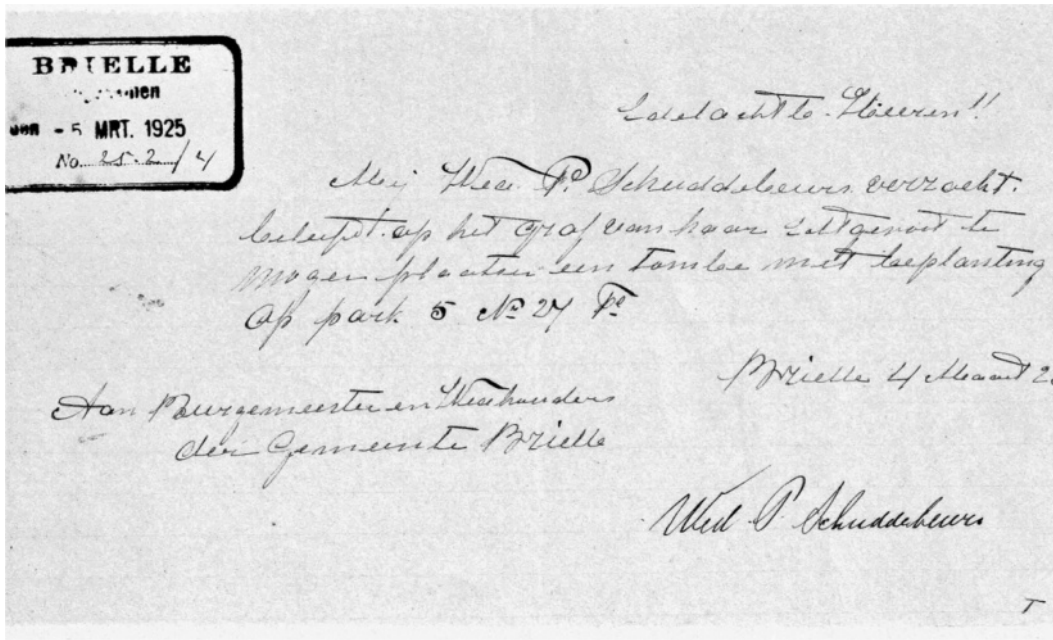 BRIELLE
- 5 MRT. 1925
No. 25.2/4
Edelachtb. Heeren!!
Mij Wed. P. Schuddebeurs verzocht.
beleefd op het graf van haar Echtgenoot te
mogen plaatsen een tombe met beplanting
Op park 5 No 27
Brielle 4 Maart 2
Aan Burgemeester en Wethouders
der Gemeente Brielle
Wed P Schuddebeurs